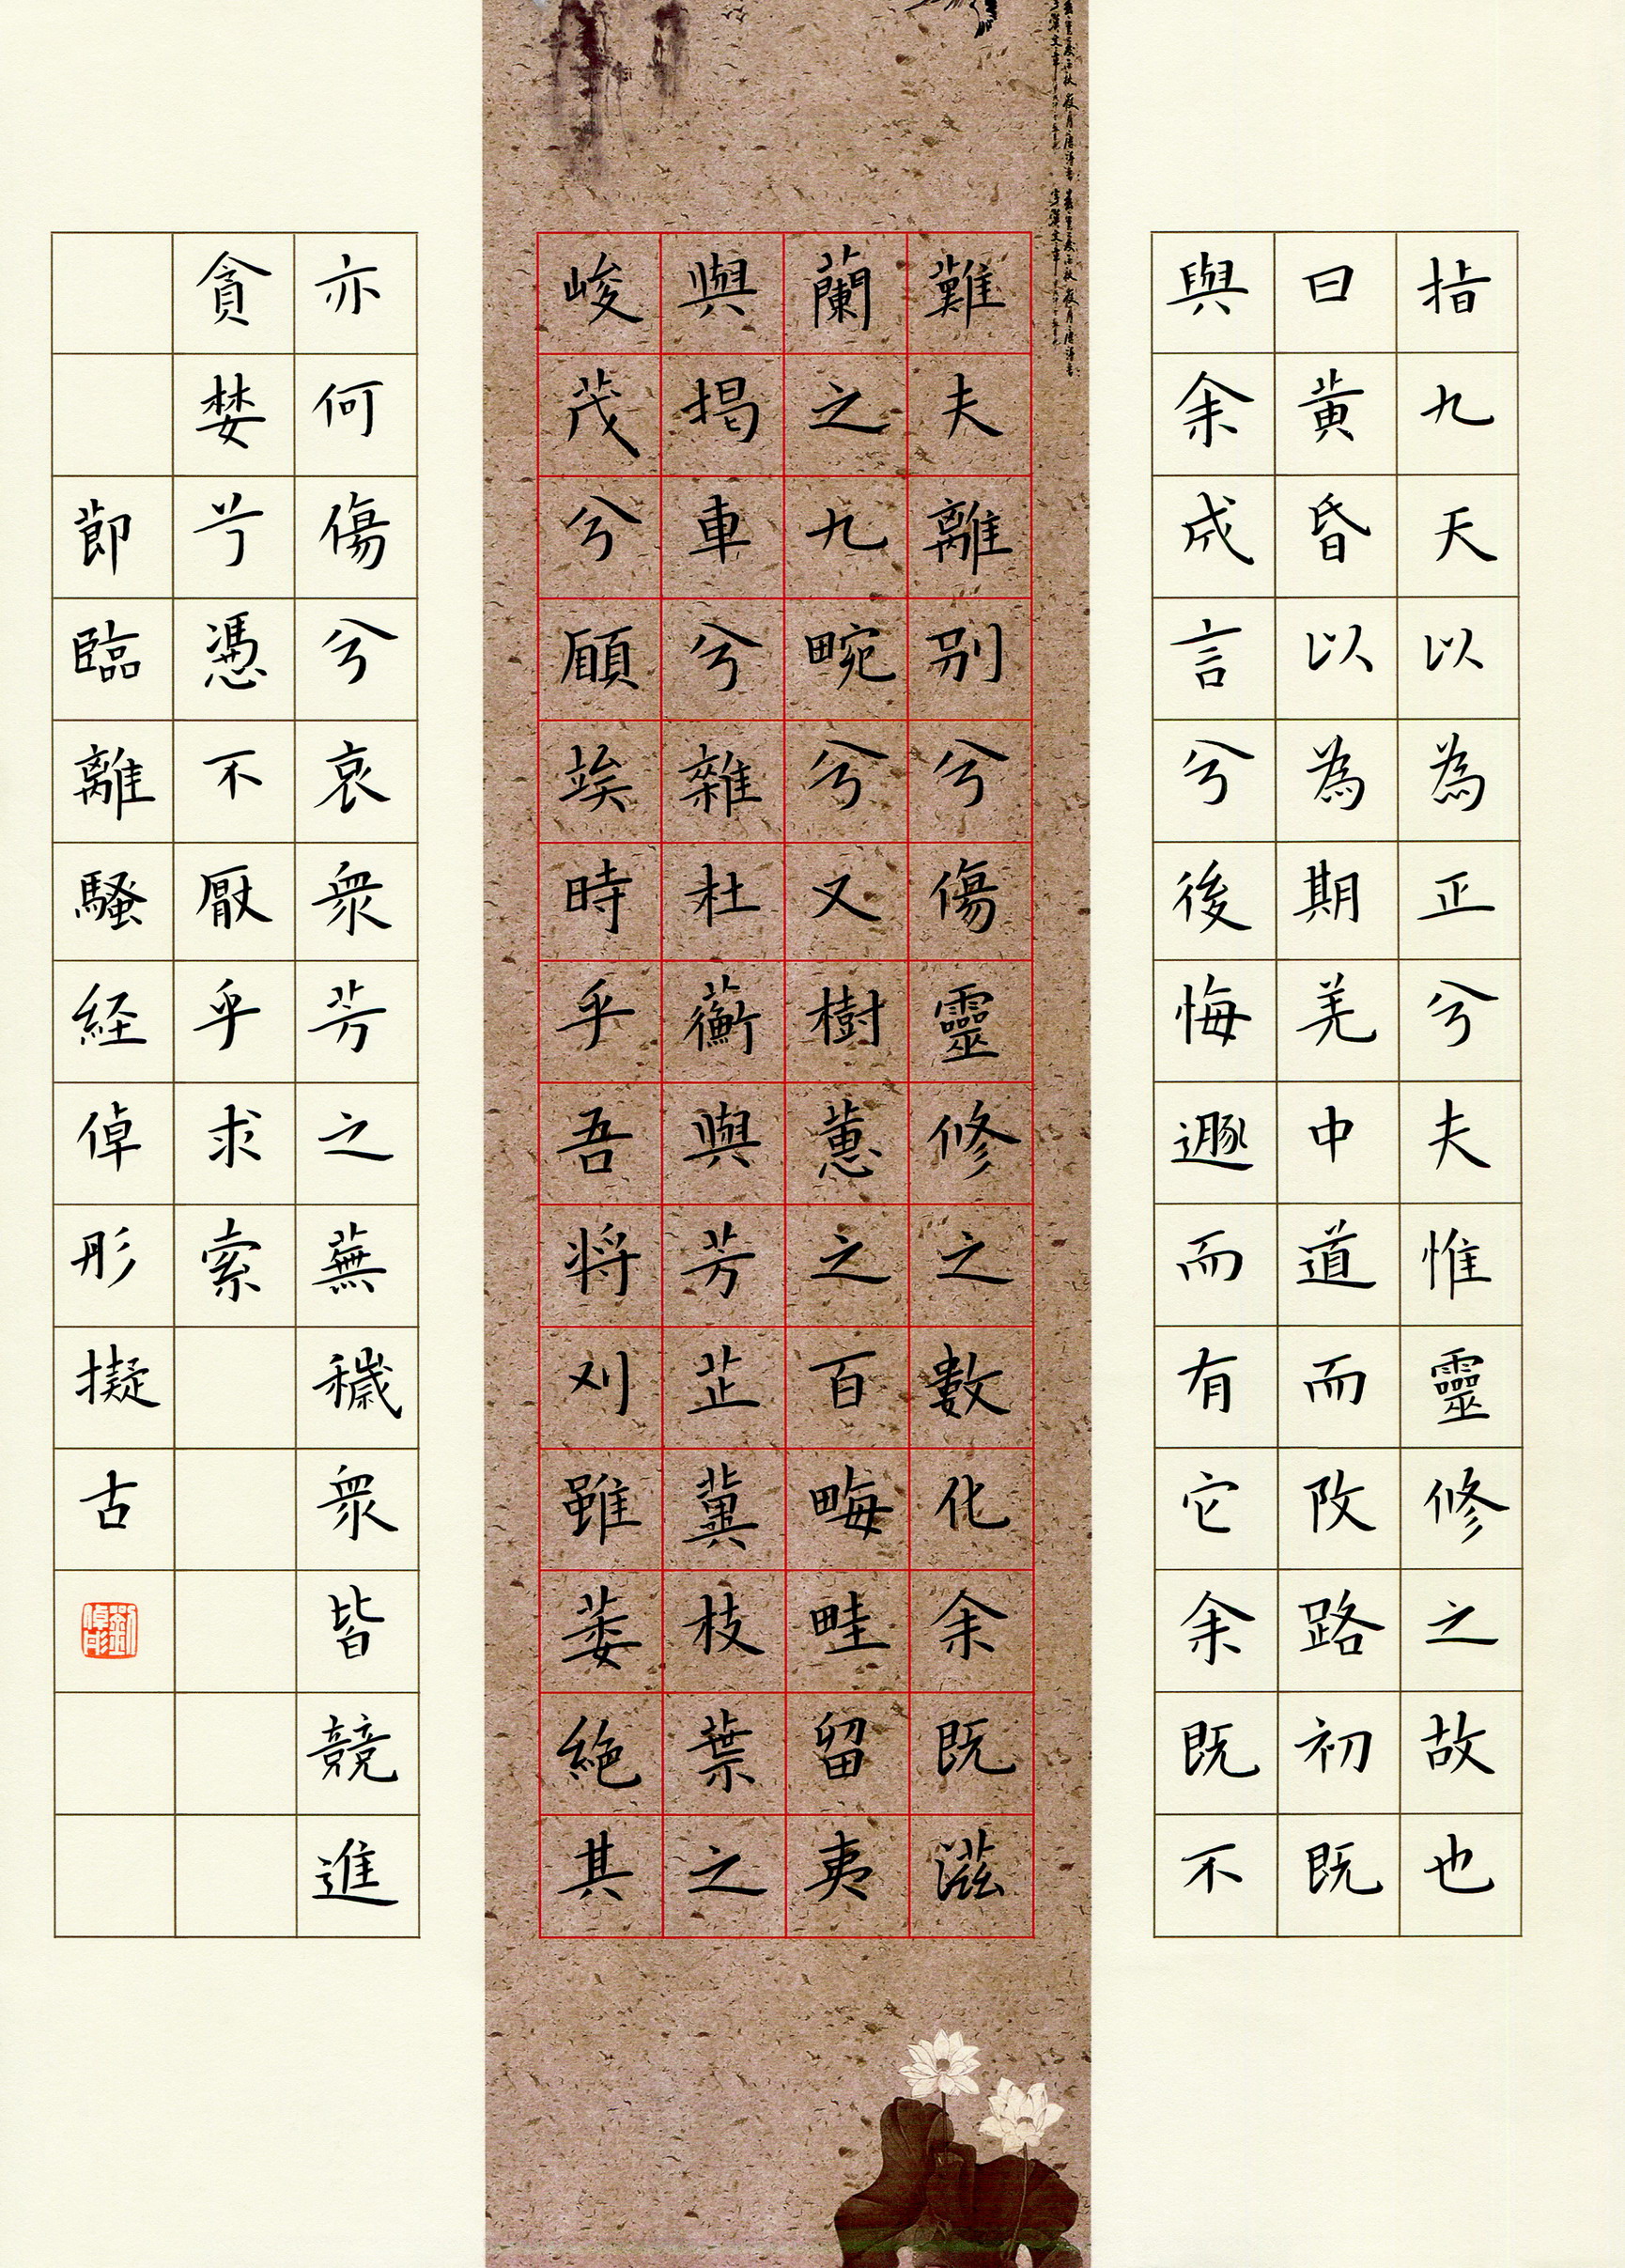 指九天以為正兮夫惟靈修之故也
曰黃昏以為期羌中道而改路初既
與余成言兮後悔遯而有它余既不
難夫離別兮傷靈修之數化余既滋
蘭之九畹兮又樹蕙之百畮畦留夷
與揭車兮雜杜蘅與芳芷冀枝葉之
峻茂兮願竢時乎吾将刈雖萎絕其
亦何傷兮哀眾芳之蕪穢眾皆競進
貪婪兮憑不厭乎求索
節臨離騷経倬彤擬古
劉倬彤